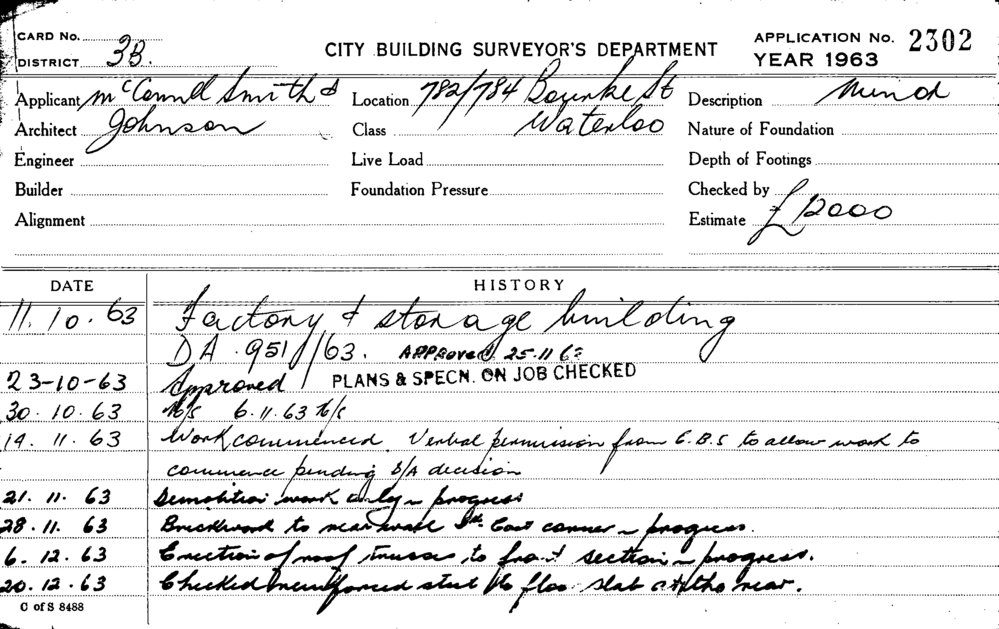 CARD No.
DISTRICT 3B.
CITY BUILDING SURVEYOR'S DEPARTMENT
APPLICATION No. 2302
YEAR 1963
Applicant McConnel Smith &
Architect Johnson
Engineer
Builder
Alignment
Location 782/784 Bourke St
Class Waterloo
Live Load
Foundation Pressure
Description Minor
Nature of Foundation
Depth of Footings
Checked by
Estimate £12000
DATE HISTORY
11.10.63 Factory & storage building
DA 951/63. APPROVED 25.11.63
23-10-63 Approved PLANS & SPECN. ON JOB CHECKED
30.10.63 N/S 6.11.63 N/S
19.11.63 Work commenced. Verbal permission from C.B.S to allow work to
commence pending D/A decision
21.11.63 Demolition work only - progress
28.11.63 Brickwork to rear wall Sth East corner - progress.
6.12.63 Erection of roof trusses to front section - progress.
20.12.63 Checked reinforced steel to floor slab at the rear.
C of S 8488